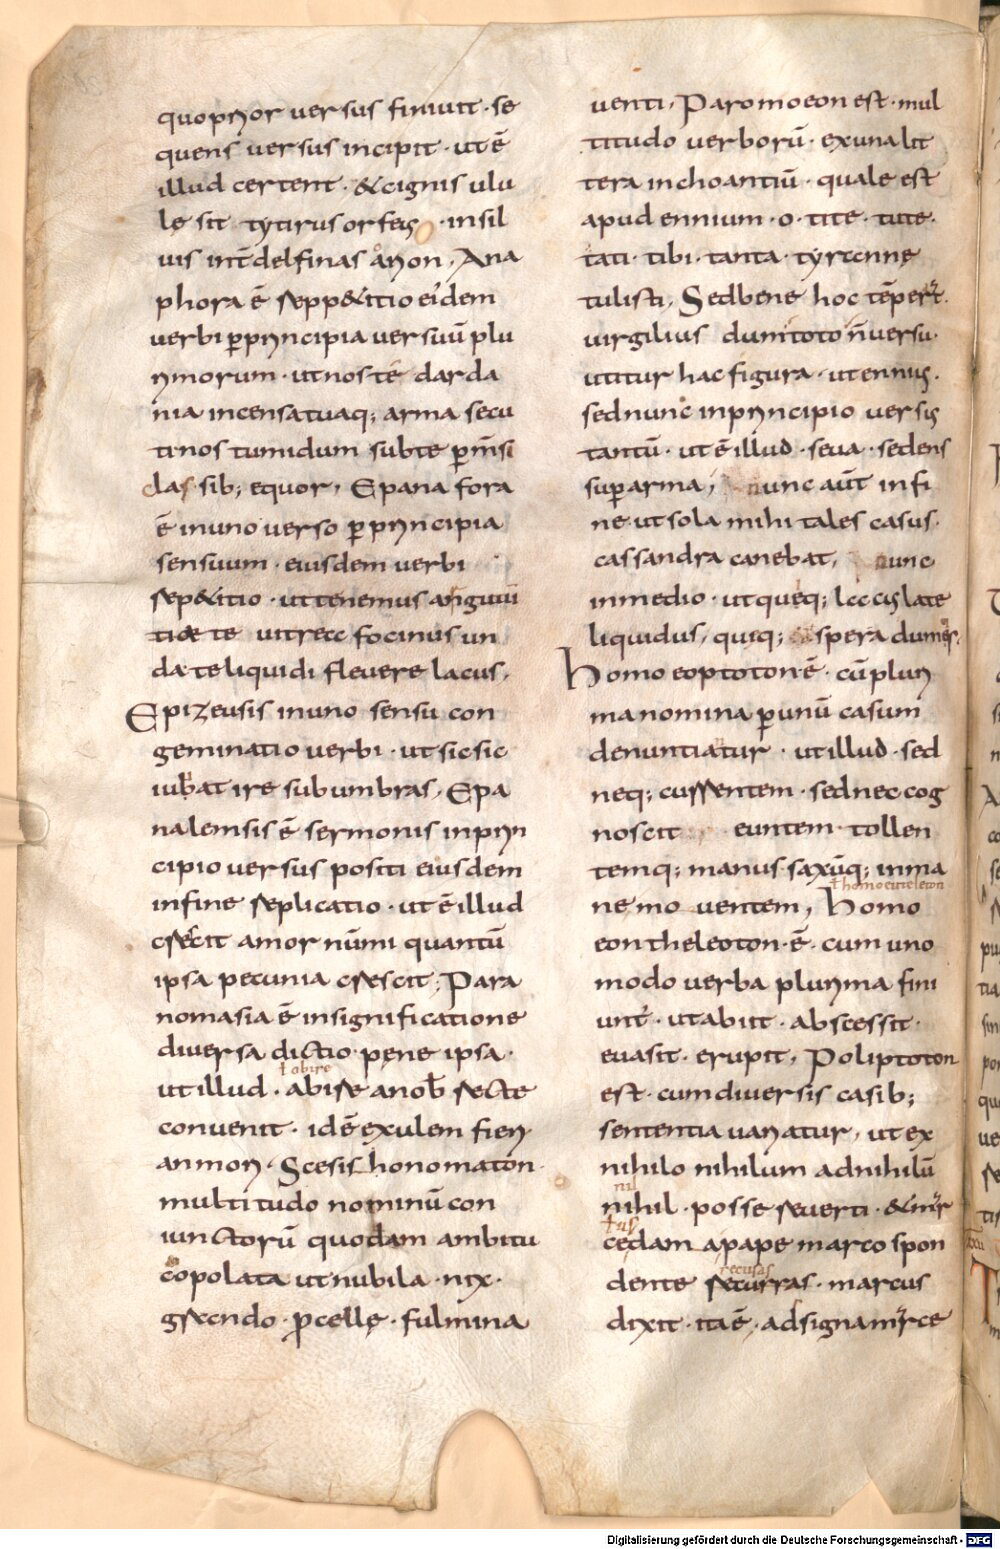 quoprior versus finiuit · se
quens versus incipit · ut ē
illud certent · & cignis ulu
lę sit tytirus orfeus · insil
uis int̄ delfinas arion, Ana
phora ē reppetitio eidem
verbi ꝑ principia versuū plu
rimorum · ut nos te darda
nia incensa tuaq; arma secu
ti nos tumidum sub te ꝑmsi
clas sib; equor, Epanafora
ē in uno verso ꝑ principia
sensuum · eiusdem uerbi
rep&itio · ut te nemus anguitii
ti de te uitrecc focinus un
da · te liquidi flevere lacus,
Epizeusis in uno sensu con
geminatio uerbi · ut sic sic
iubat ire sub umbras, Epa
nalemsis ē sermonis in prin
cipio versus positi eiusdem
in fine replicatio · ut ē illud
crescit amor nūmi quantū
ipsa pecunia crescit; Para
nomasia ē in significatione
diversa dictio pęne ipsa ·
ł abire
ut illud · abire anob̄ recte
convenit · id ē exulem fieri
an mori · Scesis honomaton
multitudo nominū con
iunctorū quodam ambitu
copolata ut nubila · nix ·
grecndo · ꝓcellę · fulmina
uenti, Paromoeon est · mul
titudo verborū · ex una lit
tera inchoantiū · quale est
apud ennium · o · tite · tute ·
tati · tibi · tanta · tyrenne
tulisti, Sed bene hoc tēperat
uirgilius dum toto n̄ versu
utitur hac figura · ut ennius ·
sed nunc in principio versus
tantū · ut ē illud · seua · sedens
suꝑ arma, nunc aūt in fi
ne ut sola mihi tales casus
cassandra canebat, nunc
in medio · ut queq; lccus late
liquidus, quiq; aspera dumis ·
Homoeoptoton ē · cū pluri
ma nomina ꝑ unū casum
denuntiatur · ut illud · sed
neq; currentem · sed nec cog
noscit euntem · tollen
temq; manus · saxūq; inma
ł homoeuteleton
ne mo ventem, Homo
eontheleoton · ē · cum uno
modo uerba plurima fini
unt · ut abiit · abscessit ·
euasit · erupit, Poliptoton
est · cum diversis casib;
sententia uariatur, ut ex
nihilo nihilum ad nihilū
nil
nihil · posse reuerti · & mr̄
ł us
cedam a pape marco spon
recusas
dente recurras · marcus
dixit · ita ē · ad signam r̄ce